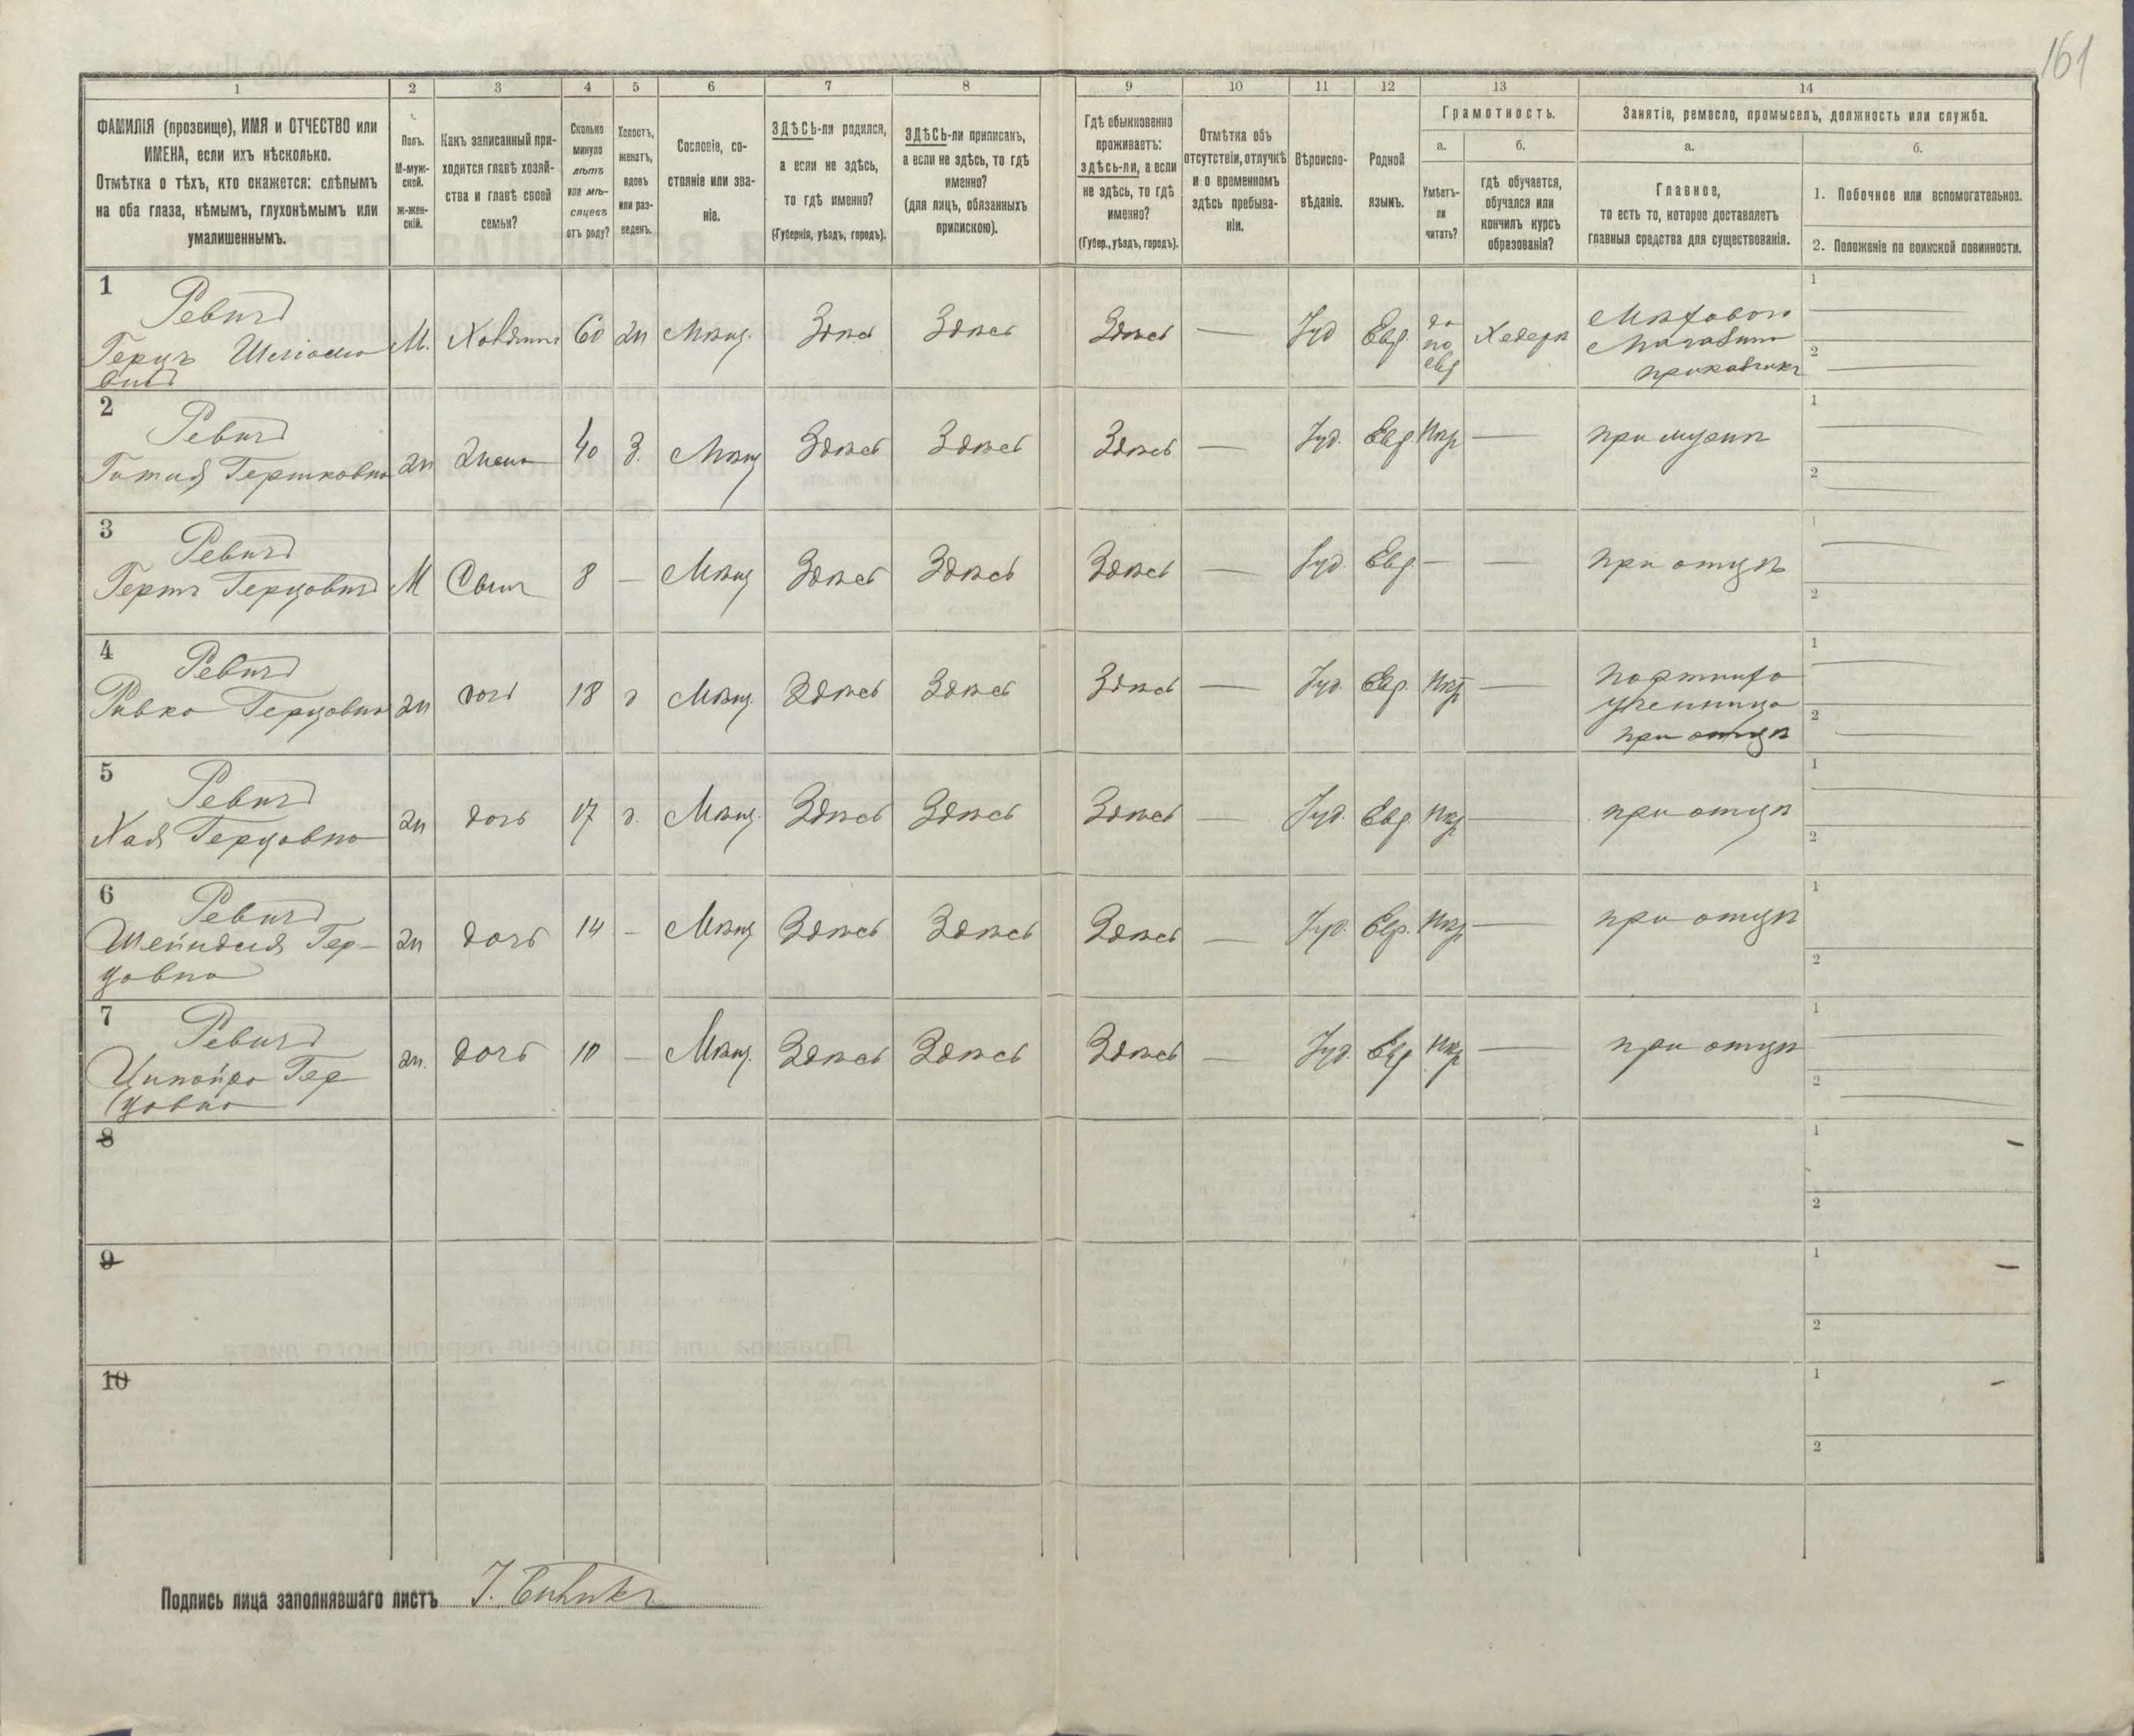 161
1 2 3 4 5 6 7 8 9 10 11 12 13 14
ФАМИЛІЯ (прозвище), ИМЯ и ОТЧЕСТВО или
ИМЕНА, если ихъ нѣсколько.
Отмѣтка о тѣхъ, кто окажется: слѣпымъ
на оба глаза, нѣмымъ, глухонѣмымъ или
умалишеннымъ.
Полъ.
М-муж-
ской.
ж-жен-
скій.
Какъ записанный при-
ходится главѣ хозяй-
ства и главѣ своей
семьи?
Сколько
минуло
лѣтъ
или мѣ-
сяцевъ
отъ роду?
Холостъ,
женатъ,
вдовъ
или раз-
веденъ.
Сословіе, со-
стояніе или зва-
ніе.
ЗДѢСЬ-ли родился,
а если не здѣсь,
то гдѣ именно?
(Губернія, уѣздъ, городъ).
ЗДѢСЬ-ли приписанъ,
а если не здѣсь, то гдѣ
именно?
(для лицъ, обязанныхъ
припискою).
Гдѣ обыкновенно
проживаетъ:
здѣсь-ли, а если
не здѣсь, то гдѣ
именно?
(Губер., уѣздъ, городъ).
Отмѣтка объ
отсутствіи, отлучкѣ
и о временномъ
здѣсь пребыва-
ніи.
Вѣроиспо-
вѣданіе.
Родной
языкъ.
Грамотность.
а.
Умѣетъ-
ли
читать?
б.
гдѣ обучается,
обучался или
кончилъ курсъ
образованія?
Занятіе, ремесло, промыселъ, должность или служба.
а.
Главное,
то есть то, которое доставляетъ
главныя средства для существованія.
б.
1. Побочное или вспомогательное.
2. Положеніе по воинской повинности.
1
Ревичъ
Герцъ
М. 60 ж Мѣщ. Здѣсь Здѣсь Здѣсь — Іуд Евр. да по евр Хедеръ
приказчикъ
1 —
2 —
2
Ревичъ
Гершковна
ж жена 40 З. Мѣщ Здѣсь Здѣсь Здѣсь — Іуд. Евр Нѣт — при мужѣ
1 —
2 —
3
Ревичъ
Герцовичъ
М Сынъ 8 — Мѣщ Здѣсь Здѣсь Здѣсь — Іуд. Евр — — при отцѣ
1 —
2
4
Ревичъ
Ривка Герцовна
ж дочь 18 д Мѣщ. Здѣсь Здѣсь Здѣсь — Іуд. Евр. Нѣт —
ученица
при отцѣ
1 —
2 —
5
Ревичъ
Хая Герцовна
ж дочь 17 д. Мѣщ. Здѣсь Здѣсь Здѣсь — Іуд. Евр. Нѣт — при отцѣ
1 —
2
6
Ревичъ
Шейндля Гер-
цовна
ж дочь 14 — Мѣщ Здѣсь Здѣсь Здѣсь — Іуд. Евр. Нѣт — при отцѣ
1
2
7
Ревичъ
Ципойра Гер-
цовна
ж. дочь 10 — Мѣщ. Здѣсь Здѣсь Здѣсь — Іуд. Евр Нѣт — при отцѣ
1 —
2 —
8
1 —
2
9
1 —
2
10
1 —
2
Подпись лица заполнявшаго листъ